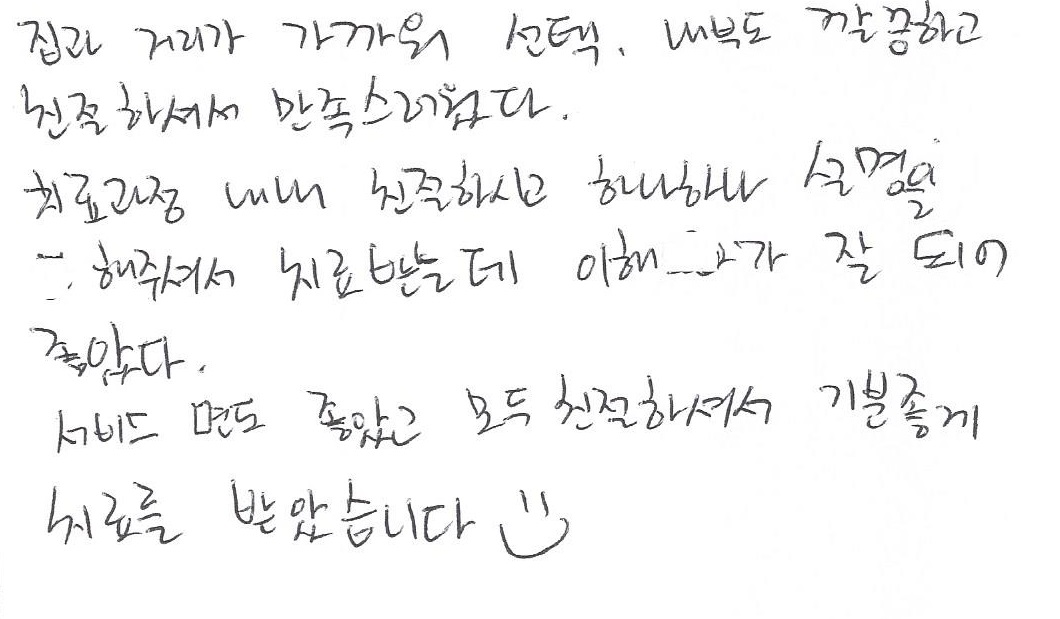 집과 거리가 가까워 선택. 내부도 깔끔하고
친절하셔서 만족스러웠다.
치료과정 내내 친절하시고 하나하나 설명을
해주셔서 치료받는데 이해가 잘 되어
좋았다.
서비스 면도 좋았고 모두 친절하셔서 기분좋게
치료를 받았습니다